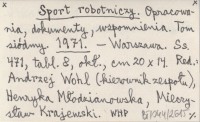 Sport robotniczy. Opracowa-
nia, dokumenty, wspomnienia. Tom
siódmy. 1971. — Warszawa. Ss.
471, tabl. 8, okł., cm 20 x 14. Red.:
Andrzej Wohl (kierownik zespołu),
Henryka Młodzianowska, Mieczy-
sław Krajewski. WHP